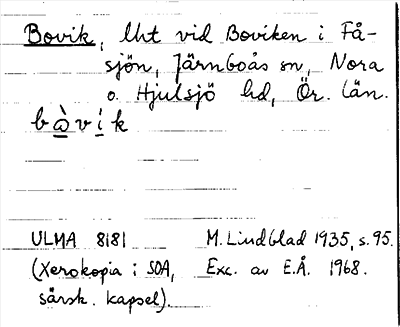 Bovik, lht vid Boviken i Få-
sjön, Järnboås sn, Nora
o. Hjulsjö hd, Ör. län.
bàvík
ULMA 8181 M. Lindblad 1935, s. 95.
(Xerokopia i SOA, Exc. av E.Å. 1968.
särsk. kapsel).